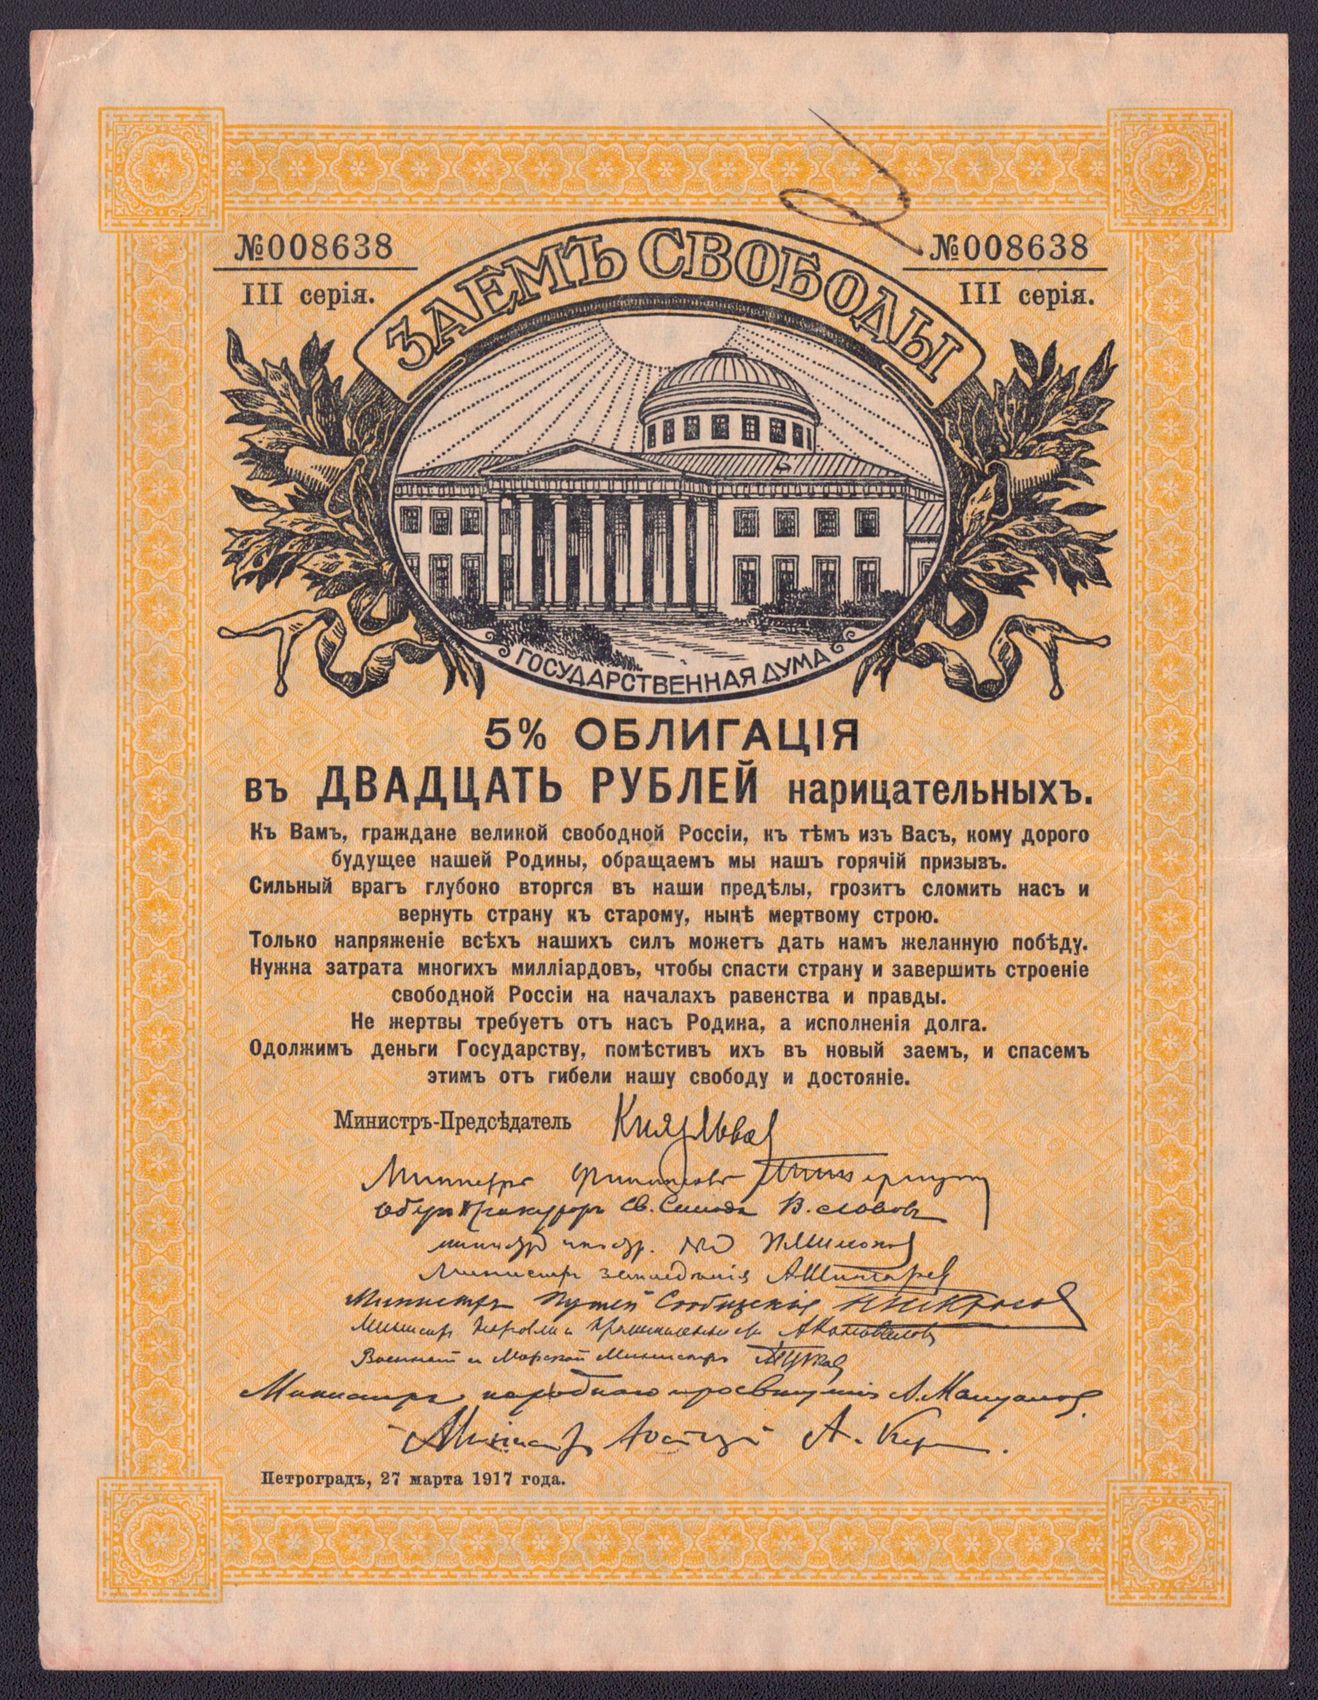 №008638
№008638
III серія.
III серія.
ЗАЕМЪ СВОБОДЫ
ГОСУДАРСТВЕННАЯ ДУМА
5% ОБЛИГАЦІЯ
въ ДВАДЦАТЬ РУБЛЕЙ нарицательныхъ.
Къ Вамъ, граждане великой свободной Россіи, къ тѣмъ изъ Васъ, кому дорого
будущее нашей Родины, обращаемъ мы нашъ горячій призывъ.
Сильный врагъ глубоко вторгся въ наши предѣлы, грозитъ сломить насъ и
вернуть страну къ старому, нынѣ мертвому строю.
Только напряженіе всѣхъ нашихъ силъ можетъ дать намъ желанную побѣду.
Нужна затрата многихъ милліардовъ, чтобы спасти страну и завершить строеніе
свободной Россіи на началахъ равенства и правды.
Не жертвы требуетъ отъ насъ Родина, а исполненія долга.
Одолжимъ деньги Государству, помѣстивъ ихъ въ новый заемъ, и спасемъ
этимъ отъ гибели нашу свободу и достояніе.
Министръ-Предсѣдатель Князь Львов
Министръ Финансовъ
Оберъ Прокуроръ Св. Синода В. Львовъ
П Милюков
Министръ земледѣлія А Шингарев
Министръ Путей Сообщенія
Министръ Торговли и Промышленности А Коновалов
Военный и Морской Министръ
Министръ народнаго просвѣщенія А. Мануйлов.
Министр Юстиціи А. Кер
Петроградъ, 27 марта 1917 года.